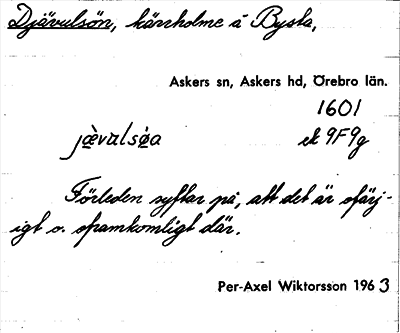 Djävulsön, kärrholme å Bysta,
Askers sn, Askers hd, Örebro län.
1601
jä̀vulsø̀a ek 9F9g
Förleden syftar på, att det är ofärj-
igt o. oframkomligt där.
Per-Axel Wiktorsson 1963